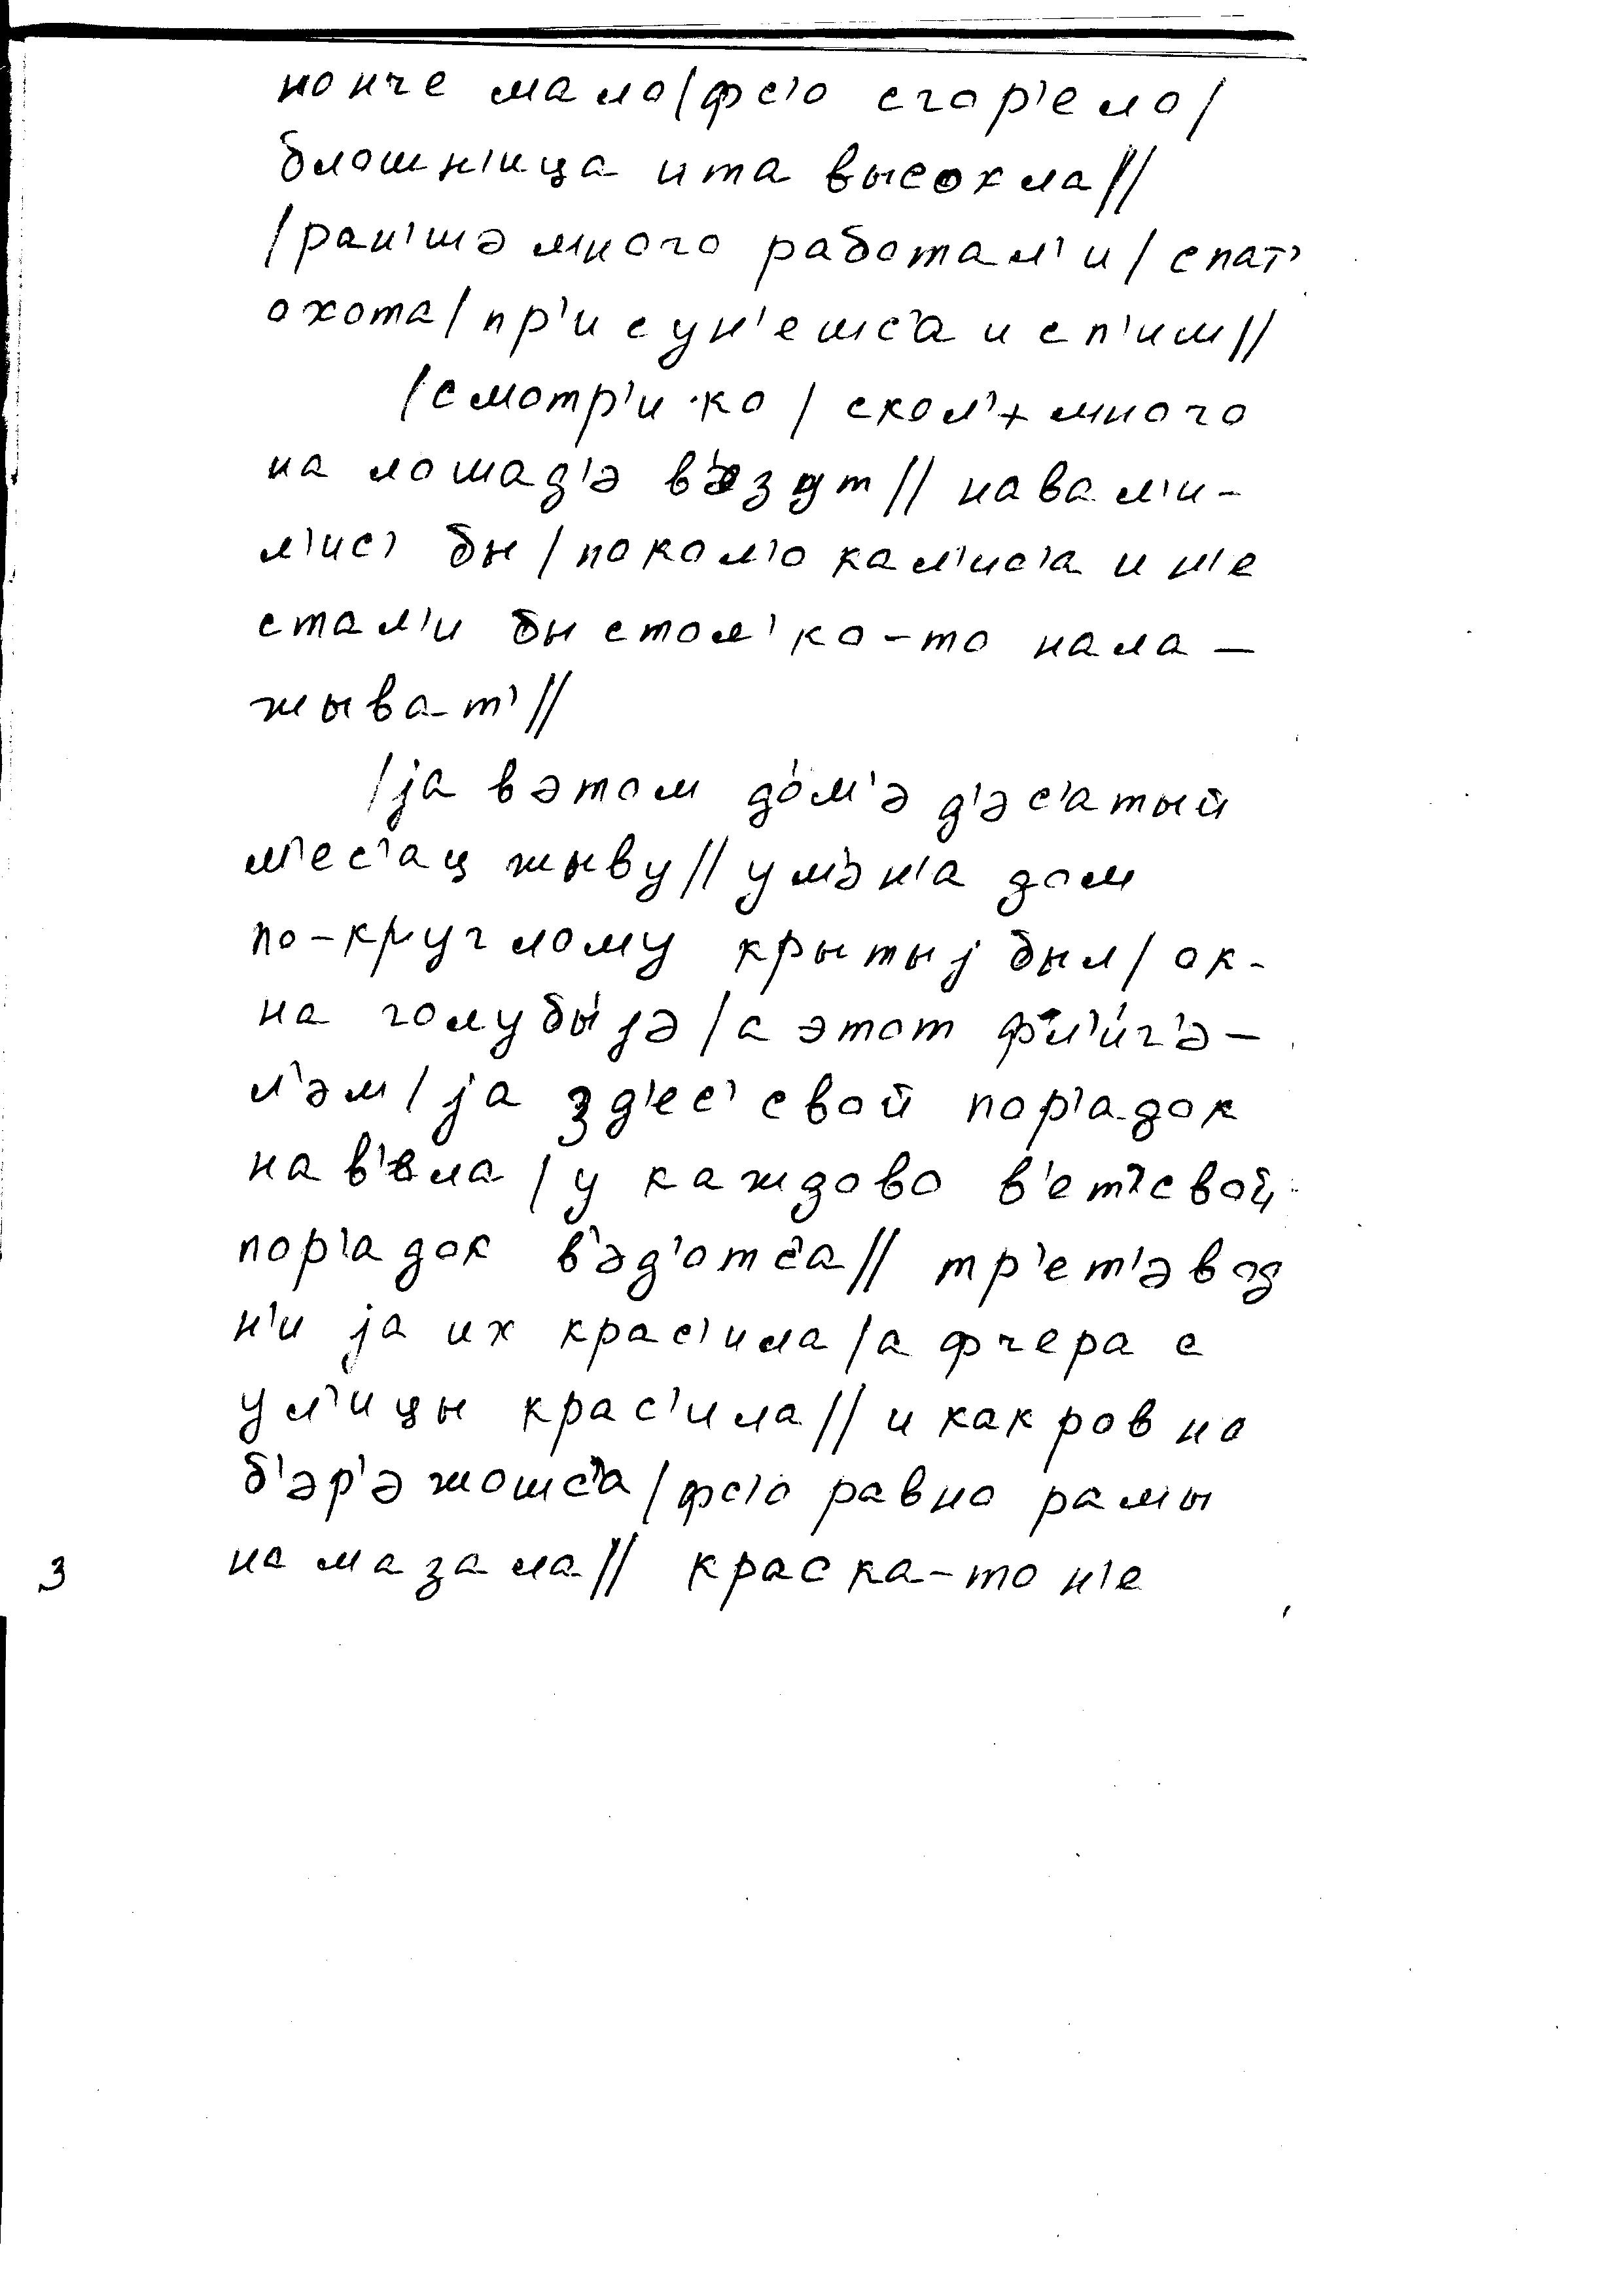 нонче мало/фс'о сгор'ело/
блошн'ица и та высохла//
/ран'шэ много работал'и/спат'
охота/пр'исун'ешс'а и сп'иш//
/смотр'и-ко/скол'+ много
на лошад'э в'эзут//навал'и-
л'ис' бы/покол'о кал'ис'а и н'е
стал'и бы стол'ко-то нала-
жыват'//
/jа в этом до́м'э д'эс'атый
м'ес'ац жыву//у м'эн'а дом
по-круглому крытыj был/ок-
на голубы́jэ/а этот фл'и́г'э-
л'эм/jа зд'ес' свой пор'адок
нав'ела/у каждово в'ет' свой
пор'адок в'эд'отс'а//тр'ет'эвод
н'и jа их крас'ила/а фчера с
ул'ицы крас'ила//и как ровно
б'эр'эжошс'а/фс'о равно рамы
намазала//краска-то н'е
3